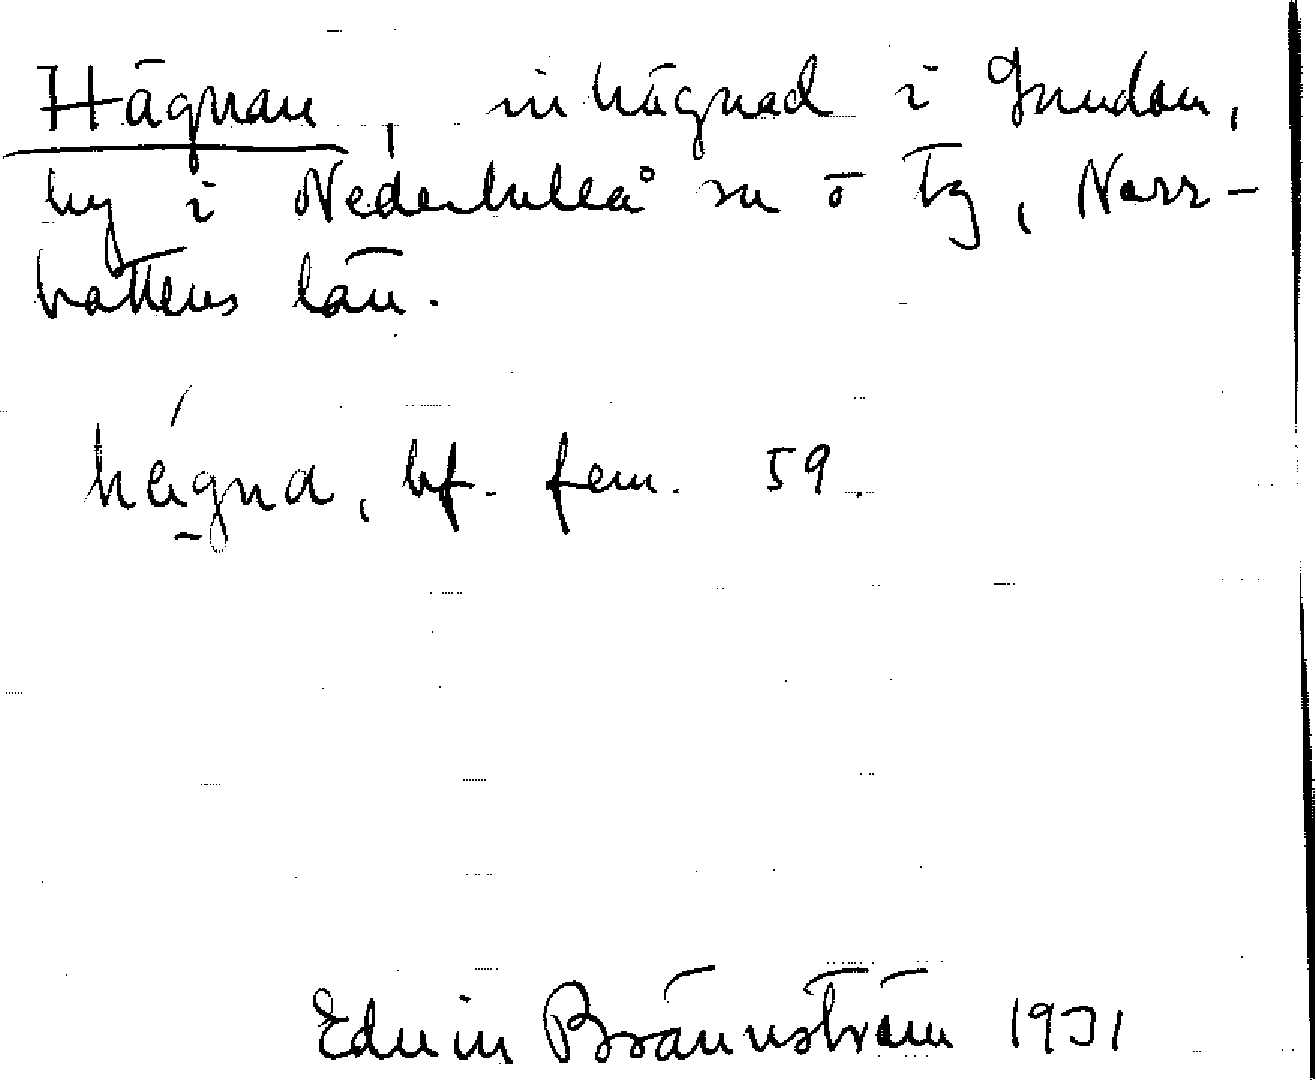 Hägnan, inhägnad i Sundom,
by i Nederluleå sn o tg, Norr-
bottens län.
hägna, bf. fem. 59.
Edvin Brännström 1931